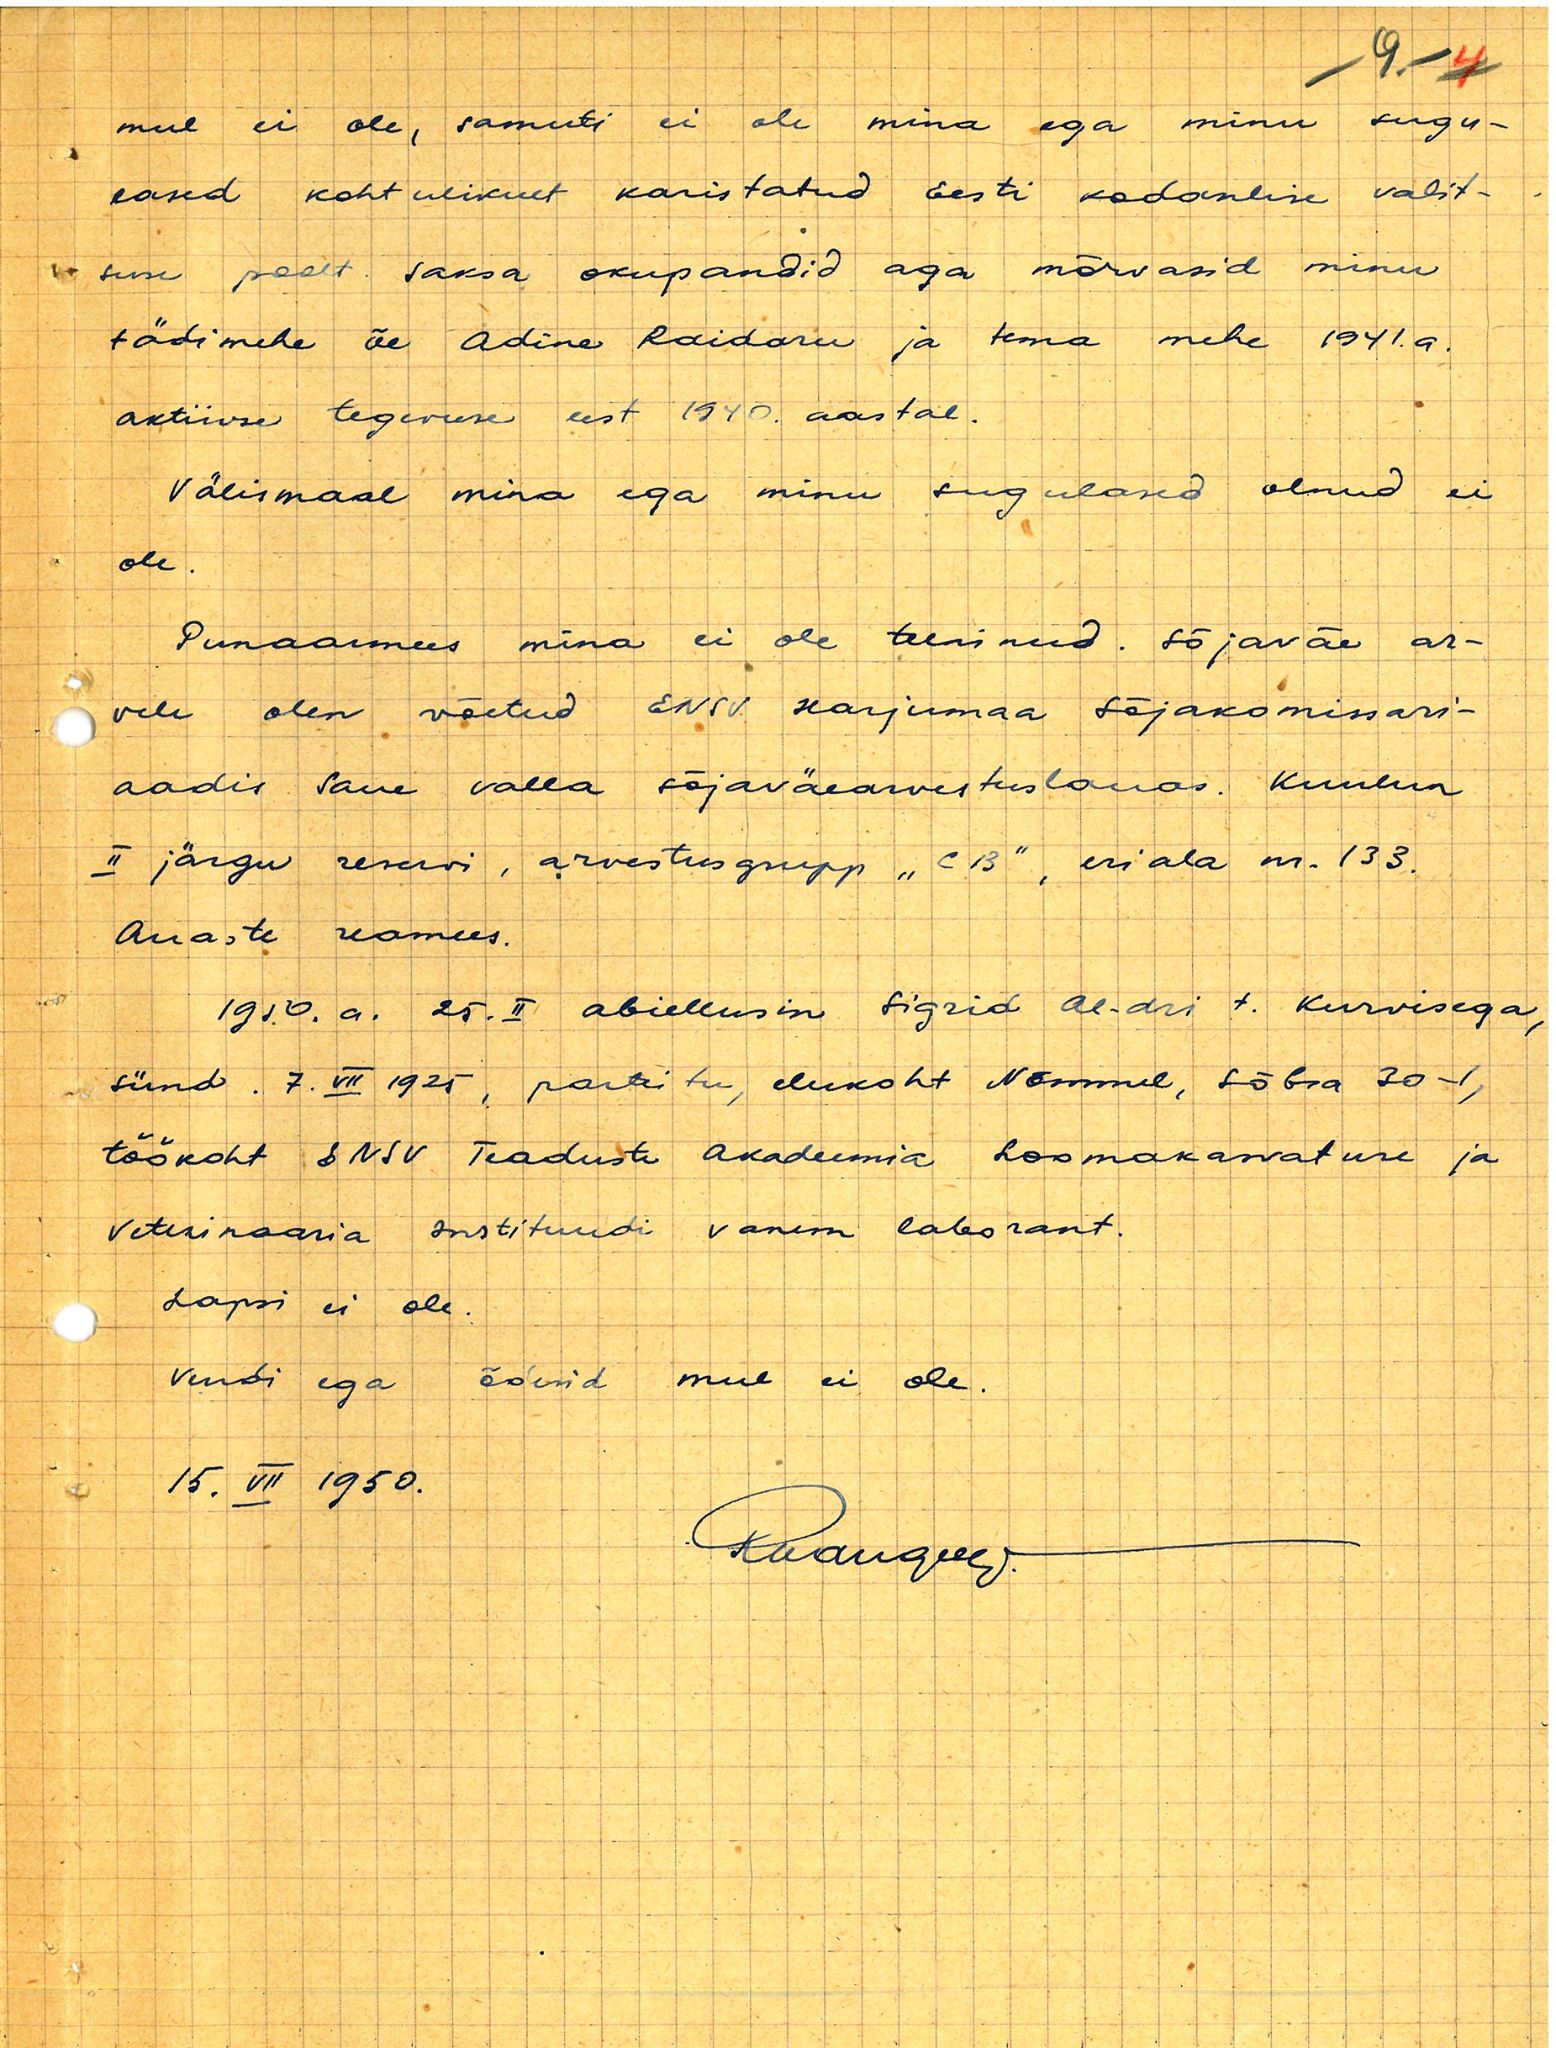 -9.- 4
mul ei ole, samuti ei ole mina ega minu sugu-
lased kohtulikult karistatud Eesti kodanlise valit-
suse poolt. Saksa okupandid aga mõrvasid minu
tädimehe õe Adine Raidaru ja tema mehe 1941.a.
aktiivse tegevuse eest 1940. aastal.
Välismaal mina ega minu sugulased olnud ei
ole.
Punaarmees mina ei ole teeninud. Sõjaväe ar-
vele olen võetud ENSV Harjumaa Sõjakomissari-
aadis Saue valla sõjaväearvestuslauas. Kuulun
II järgu reservi, arvestusgrupp „CB", eriala nr. 133.
Auaste reamees.
1950. a. 25. II abiellusin Sigrid Al-dri t. Kurvisega,
sünd. 7. VII 1925, parteitu, elukoht Nõmmel, Sõbra 30-1,
töökoht ENSV Teaduste Akadeemia Loomakasvatuse ja
Veterinaaria Instituudi vanem laborant.
Lapsi ei ole.
Vendi ega õdesid mul ei ole.
15. VII 1950.